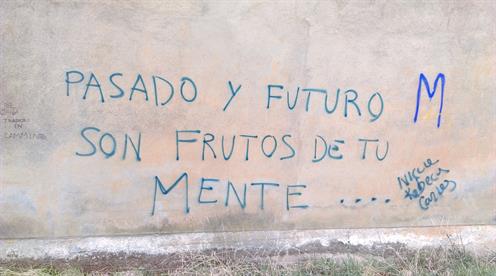 PASADO Y FUTURO M
SON FRUTOS DE TU
MENTE ....
Rebeca
Carlos
EN